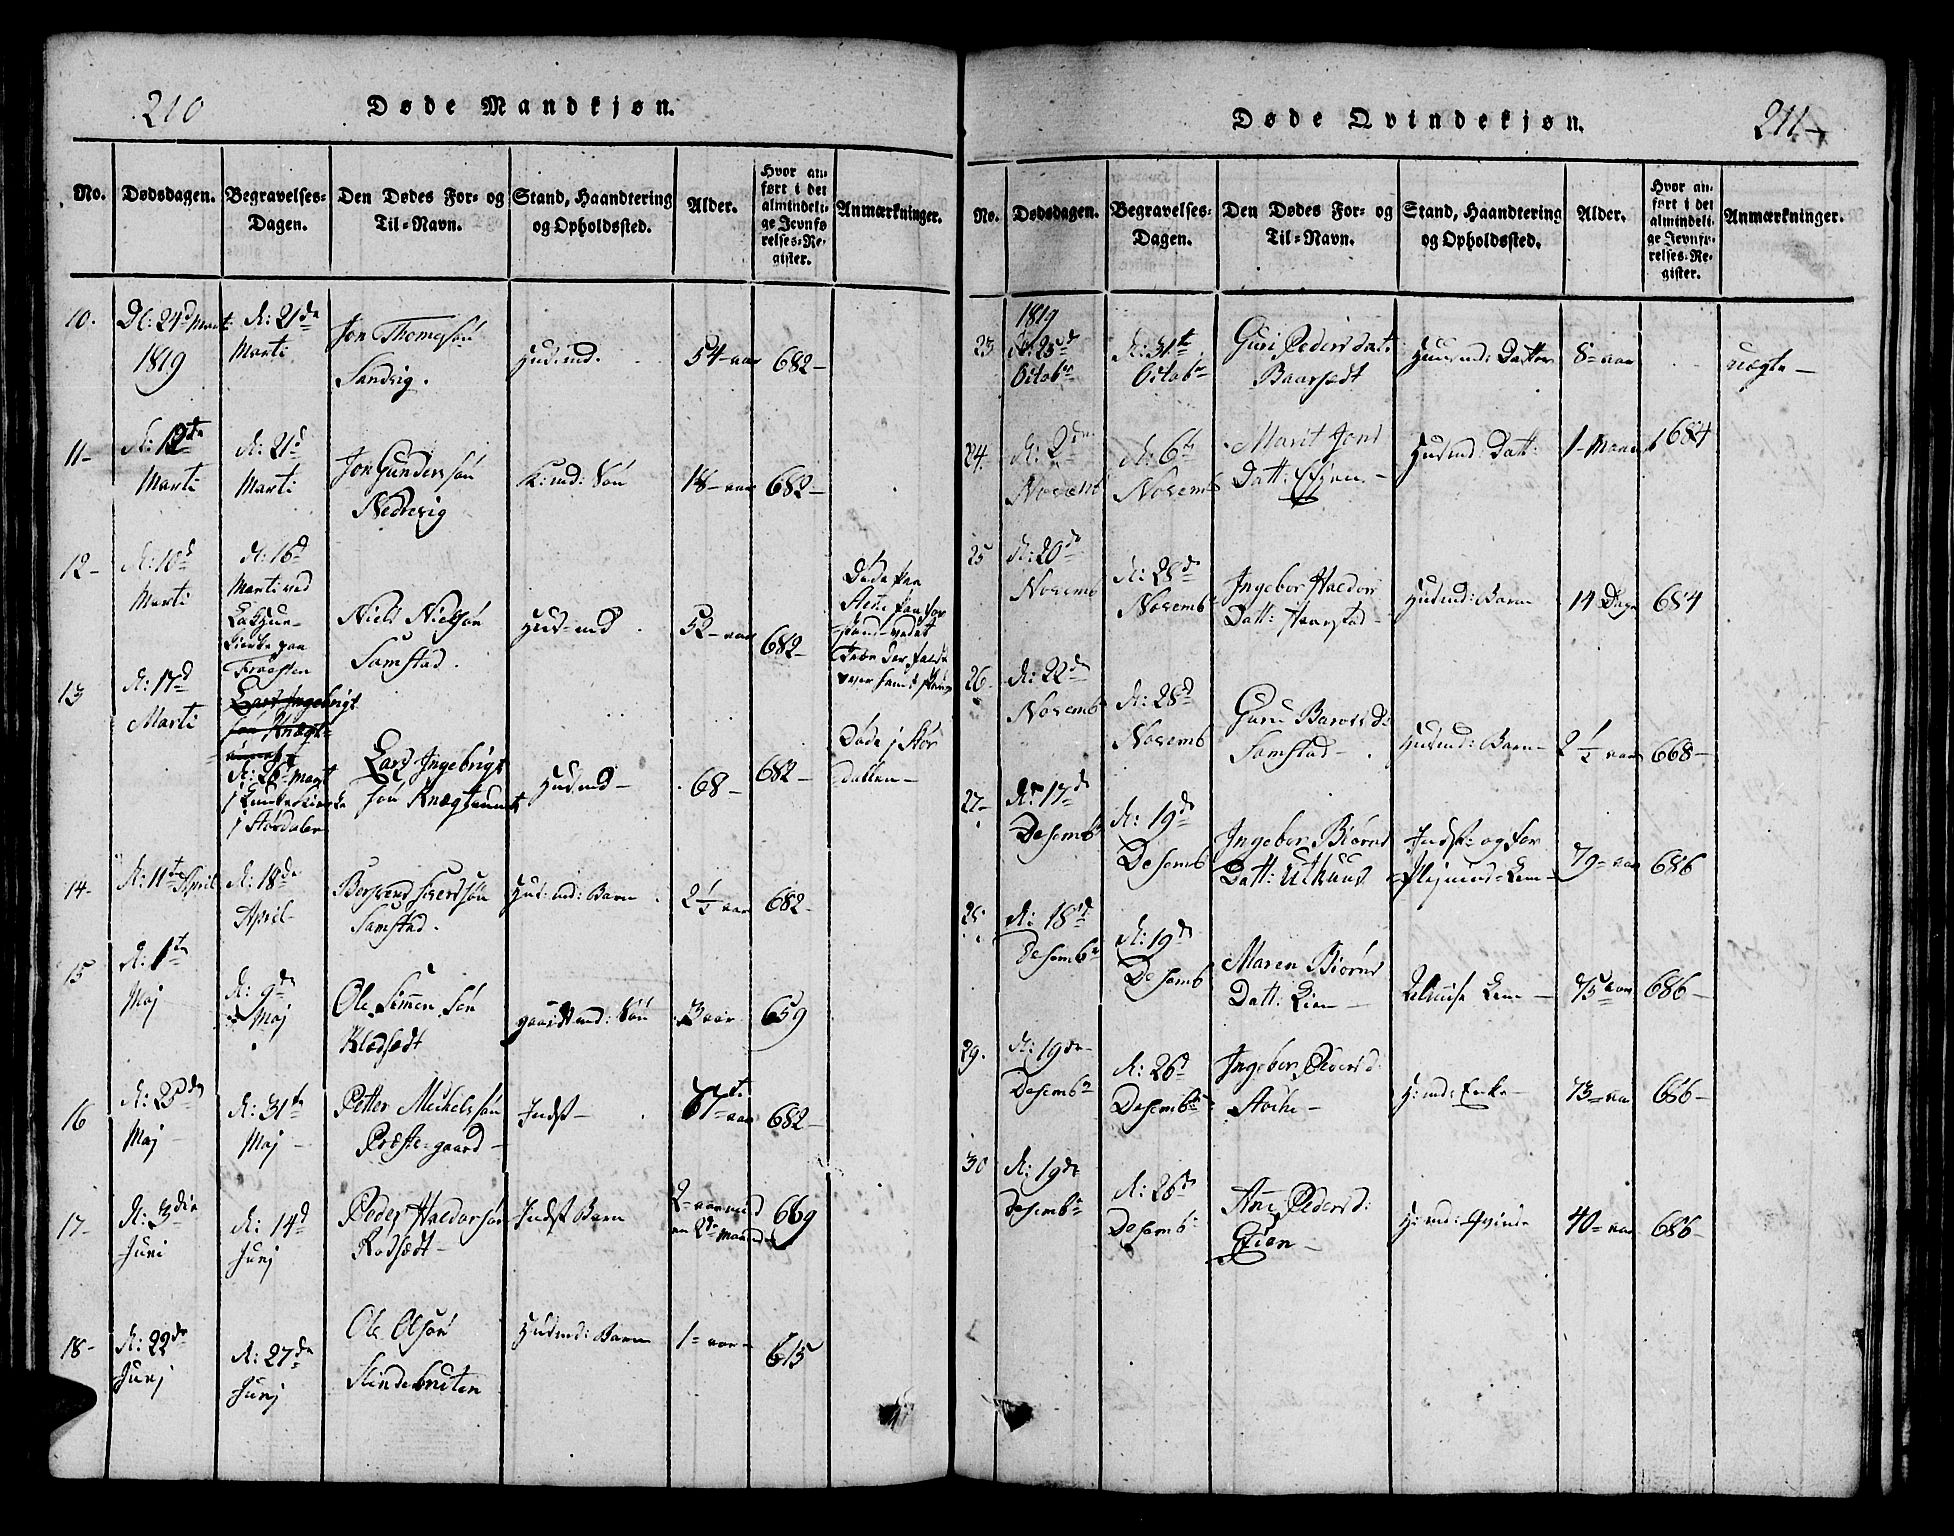 210
Døde Mandkjøn.
No. Dødsdagen. Begravelses-Dagen. Den Dødes For- og Til-Navn. Stand, Haandtering og Opholdssted. Alder. Hvor anført i det almindelige Jevnførelses-Register. Anmærkninger.
10. D: 24d Mart: 1819 d: 21de Marti Jon Thomessøn Sandvig. Husmd. 54-aar 682-
11- d: 12te Marti d: 21d Marti Jon Gunderssøn Nedrevig K: md: Søn 18-aar 682-
12- d: 10d Marti d: 16d Marti ved Niels Nielsøn Samstad. Husmd 52-aar 682- Døde paa
13 d: 17d Marti Lars Ingebrigt
d: 26- Mart i Størdalen Lars Ingebrigt søn Husmd- 68- 682- Døde i Stør dallen-
14- d: 11te April d: 18de April- Samstad. Hus: md: Barn 2½ aar 682-
15 d: 1te Maj d: 9de Maj Ole Simen Søn Klæfsædt gaardmd: Søn 3 aar 659
16 d: 23de Maj d: 31te Maj- Petter Michelssøn Præste-gaard- Indst- 67-aar 682-
17- d: 3die Juni d: 14d Junj Peder Haldorsøn Rodsædt- Indst Barn 2-aar md 669
18- d: 22de Junj d: 27de Junj Ole Olsøn Husmd: Barn 1-aar- 615
211-
Døde Qvindekjøn.
No. Dødsdagen. Begravelses-Dagen. Den Dødes For- og Til-Navn. Stand, Haandtering og Opholdssted. Alder. Hvor anført i det almindelige Jevnførelses-Register. Anmærkninger.
23 1819 d: 25d Octobr d: 31te Octobr Guri Peders dat: Baarsædt Huusmd: Datter 8-aar uægte-
24. d: 2den Novemb d: 6te Novemb Marit Jons Datt: Husmd: Datt: 1-Maaned 684
25 d: 20de Novemb d: 28de Novemb Ingebor Haldors Datt: Haarstad- Husmd: Barn 14 Dage 684
26- d: 22de Novemb d: 28d Novemb Guru Baros d: Samstad- Husmd: Barn- 2½ aar 668-
27- d: 17de Desemb d: 19de Desemb Ingebor Biørns Datt: Uthuus Indst- og for 79-aar 686
28- d: 18de Desemb d: 19de Desemb Maren Biørns Datt: Lien- 75-aar 686-
29. d: 19de Desemb d: 26d Desemb Ingebor Peders d: H: md: Enke- 73-aar 686-
30 d: 19de Desemb d: 26de Desemb Ane Peders d: H: md: Qvinde 40-aar 686-